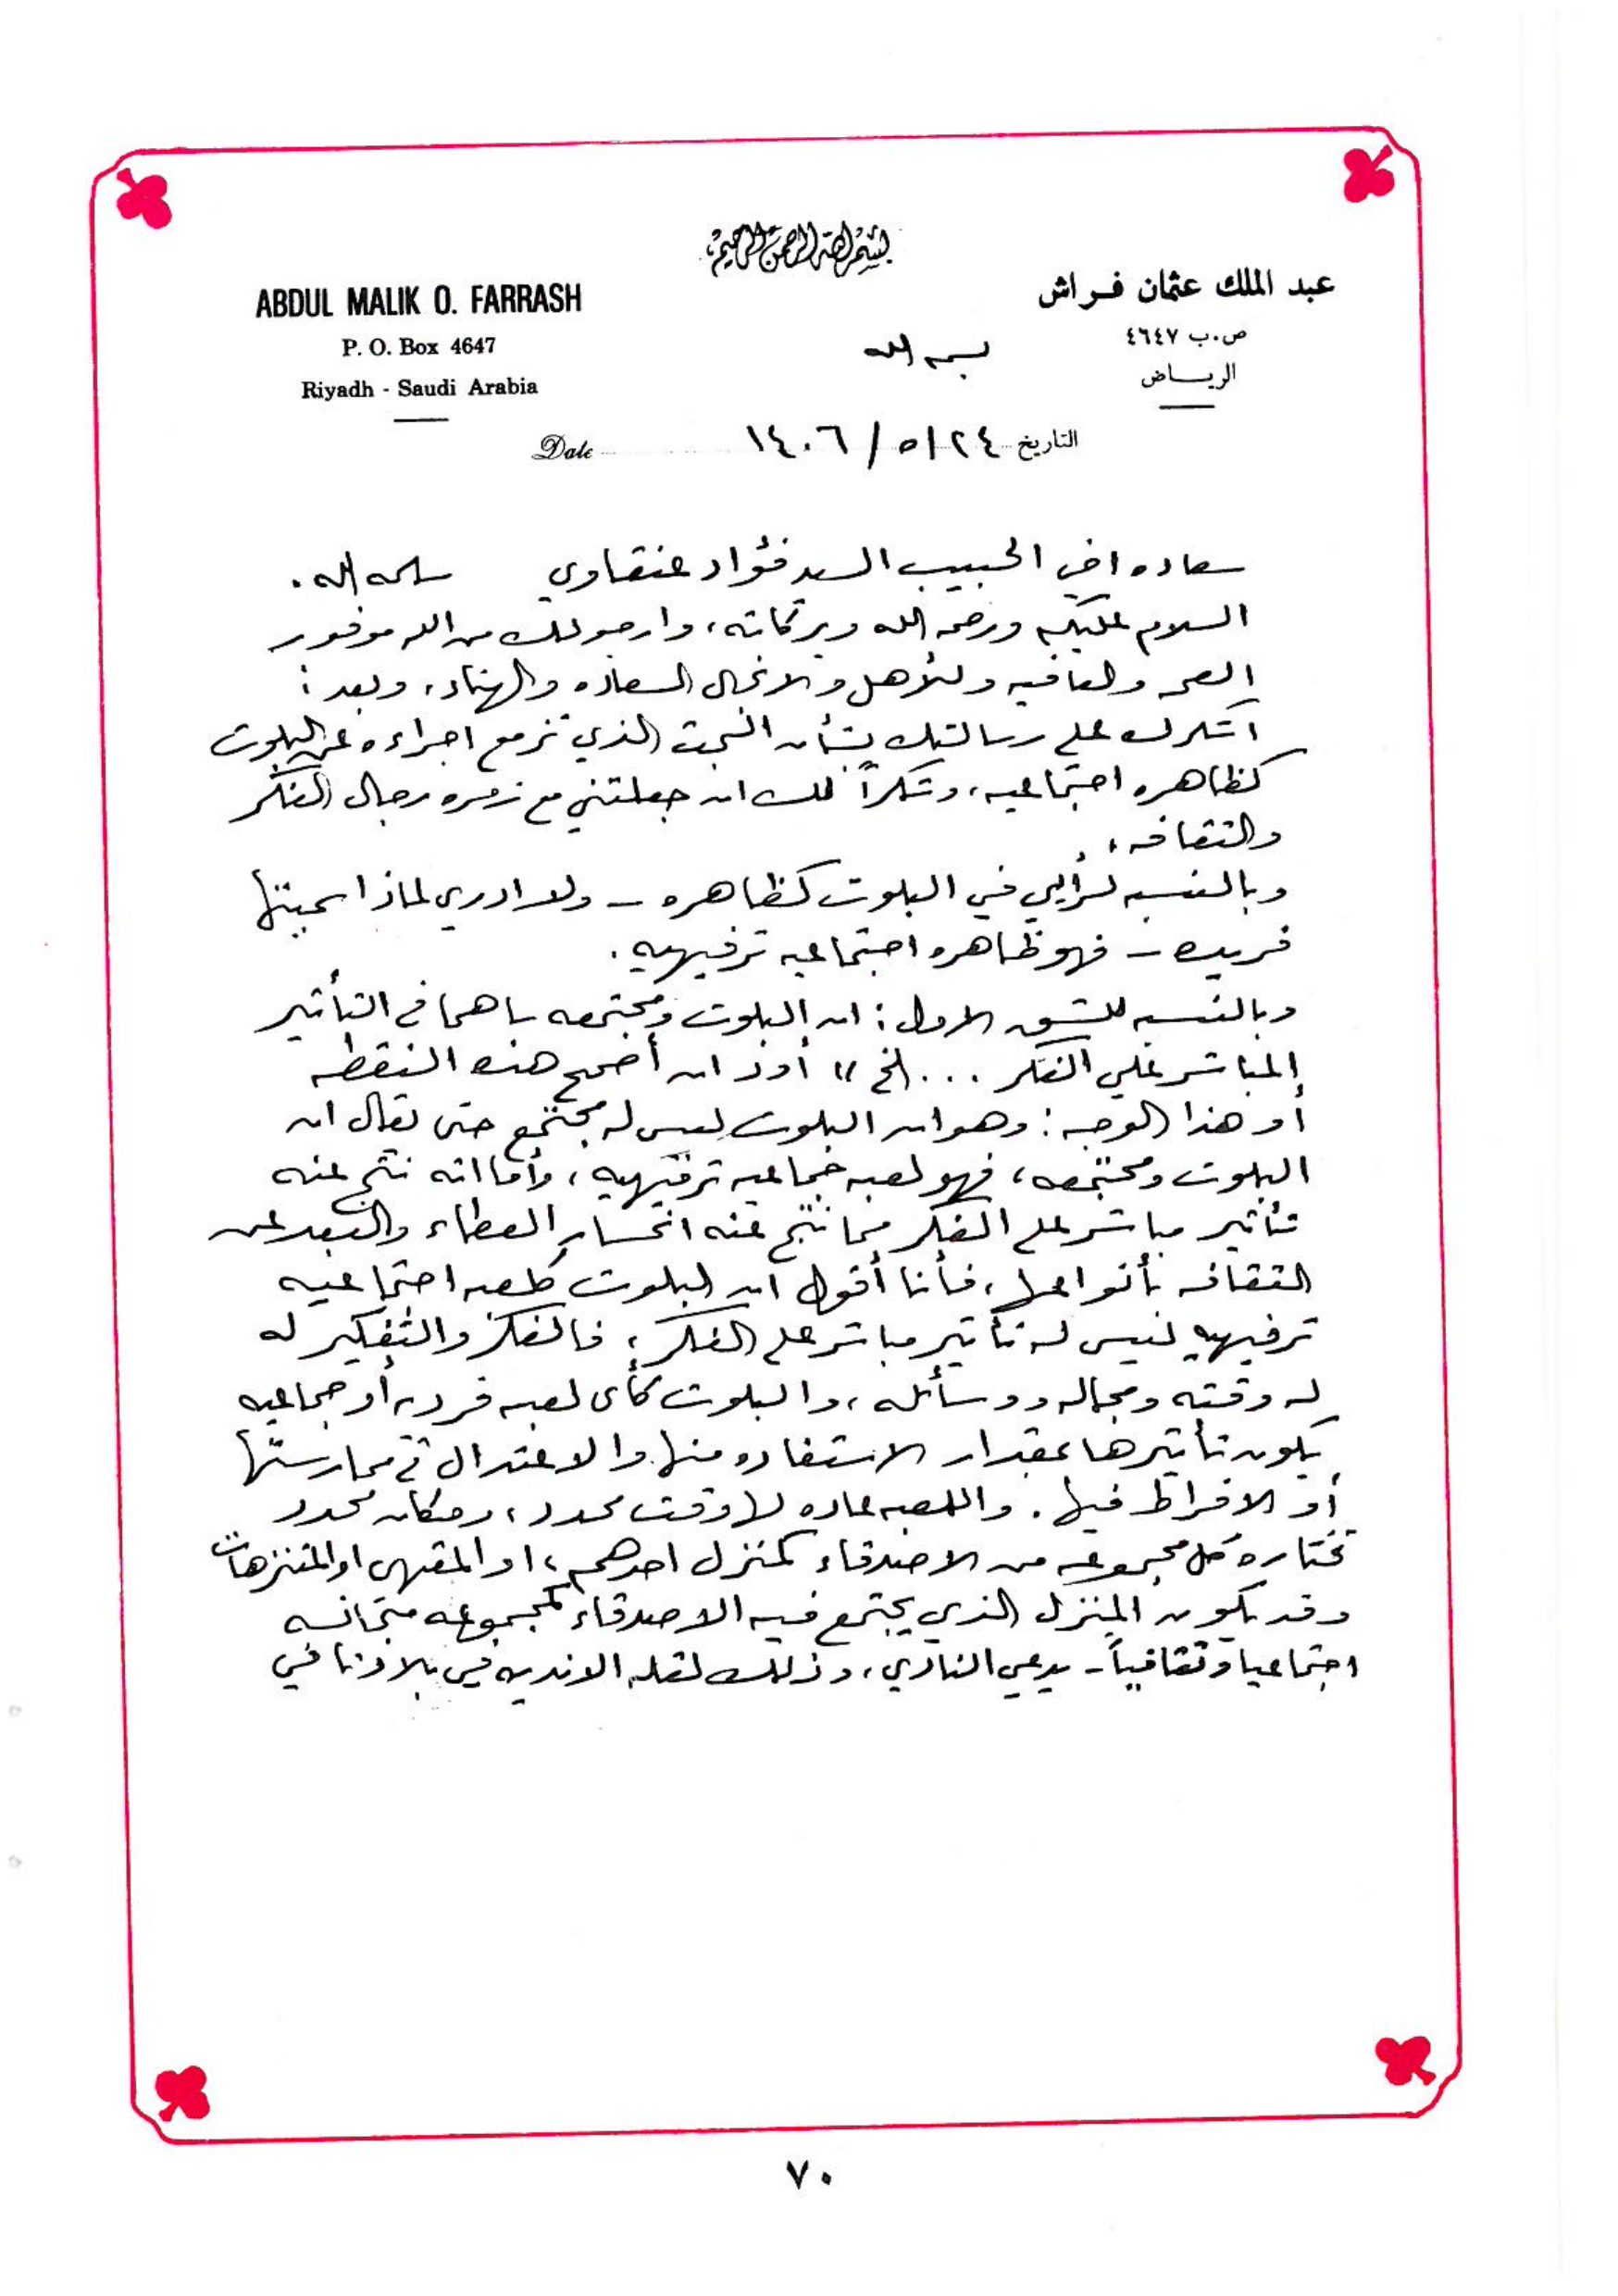 بسم الله الرحمن الرحيم
ABDUL MALIK O. FARRASH
P. O. Box 4647
Riyadh - Saudi Arabia
عبد الملك عثمان فراش
ص.ب ٤٦٤٧
الرياض
بسم الله
التاريخ ٢٤/٥/١٤٠٦ Date
سعاده اخي الحبيب السيد فؤاد عنقاوي سلمه الله.
السلام عليكم ورحمه الله وبركاته، وارجو لك من الله موفور
الصحه والعافيه وللأهل والانجال السعاده والهناء، وبعد:
اشكرك على رسالتك بشأن البحث الذي تزمع اجراءه عن البلوت
كظاهره اجتماعيه، وشكراً لك ان جعلتني مع زمره رجال الفكر
والثقافه،
وبالنسبه لرأيي في البلوت كظاهره - ولا ادري لماذا سميتها
فريده - فهو ظاهره اجتماعيه ترفيهيه.
وبالنسبه للشق الاول: ان البلوت ومجتمعه ساهما في التأثير
المباشر على الفكر ... الخ" أود ان أصحح هذه النقطه
أو هذا الوجه: وهو ان البلوت ليس له مجتمع حتى يقال ان
البلوت ومجتمعه، فهو لعبه جماعيه ترفيهيه، وأما انه نتج عنه
تأثير مباشر على الفكر مما نتج عنه انحسار العطاء والبعد عن
الثقافه بأنواعها، فأنا أقول ان البلوت كلعبه اجتماعيه
ترفيهيه ليس له تأثير مباشر على الفكر، فالفكر والتفكير له
له وقته ومجاله ووسائله، والبلوت كأى لعبه فرديه أو جماعيه
يكون تأثيرها بمقدار الاستفاده منها والاعتدال في ممارستها
أو الافراط فيها. واللعبه عاده لها وقت محدد، ومكان محدد
تختاره كل مجموعه من الاصدقاء كمنزل احدهم، او المقهى او المتنزهات
وقد يكون المنزل الذي يجتمع فيه الاصدقاء كمجموعه متجانسه
اجتماعيا وثقافياً - يدعي النادي، وذلك لقله الانديه في بلادنا في
٧٠